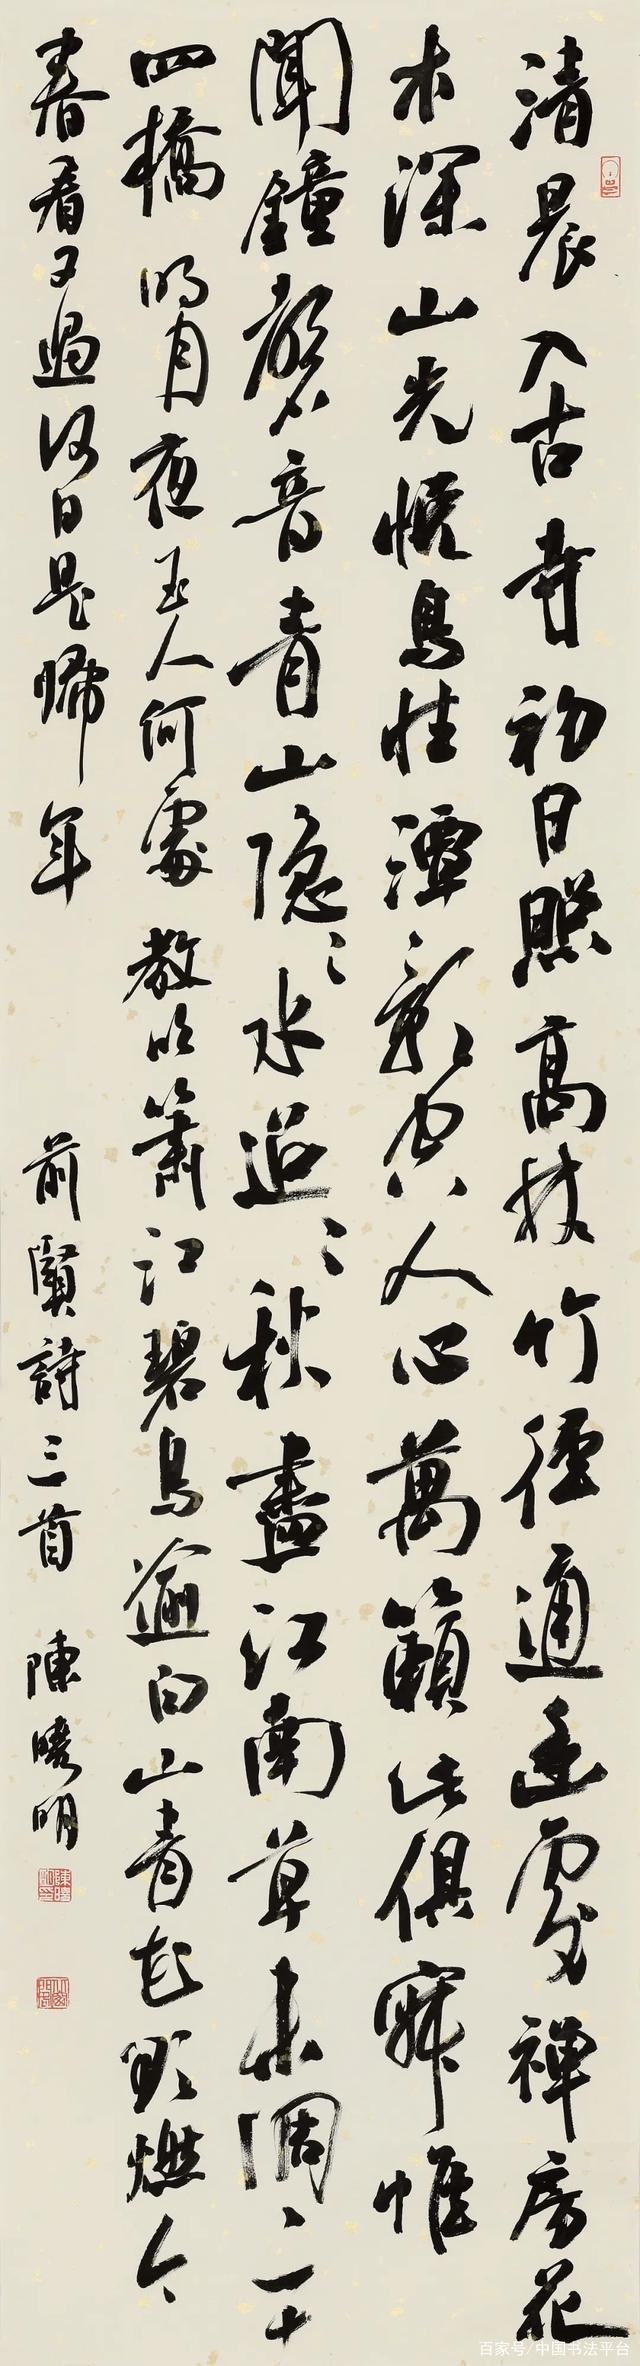 清晨入古寺初日照高林竹徑通幽處禪房花
木深山光悦鳥性潭影空人心萬籟此俱寂惟
聞鐘磬音青山隐〻水迢〻秋盡江南草未凋二十
四橋明月夜玉人何處教吹簫江碧鳥逾白山青花欲燃今
春看又過何日是歸年 前賢詩三首 陳曉明
百家号/中国书法平台